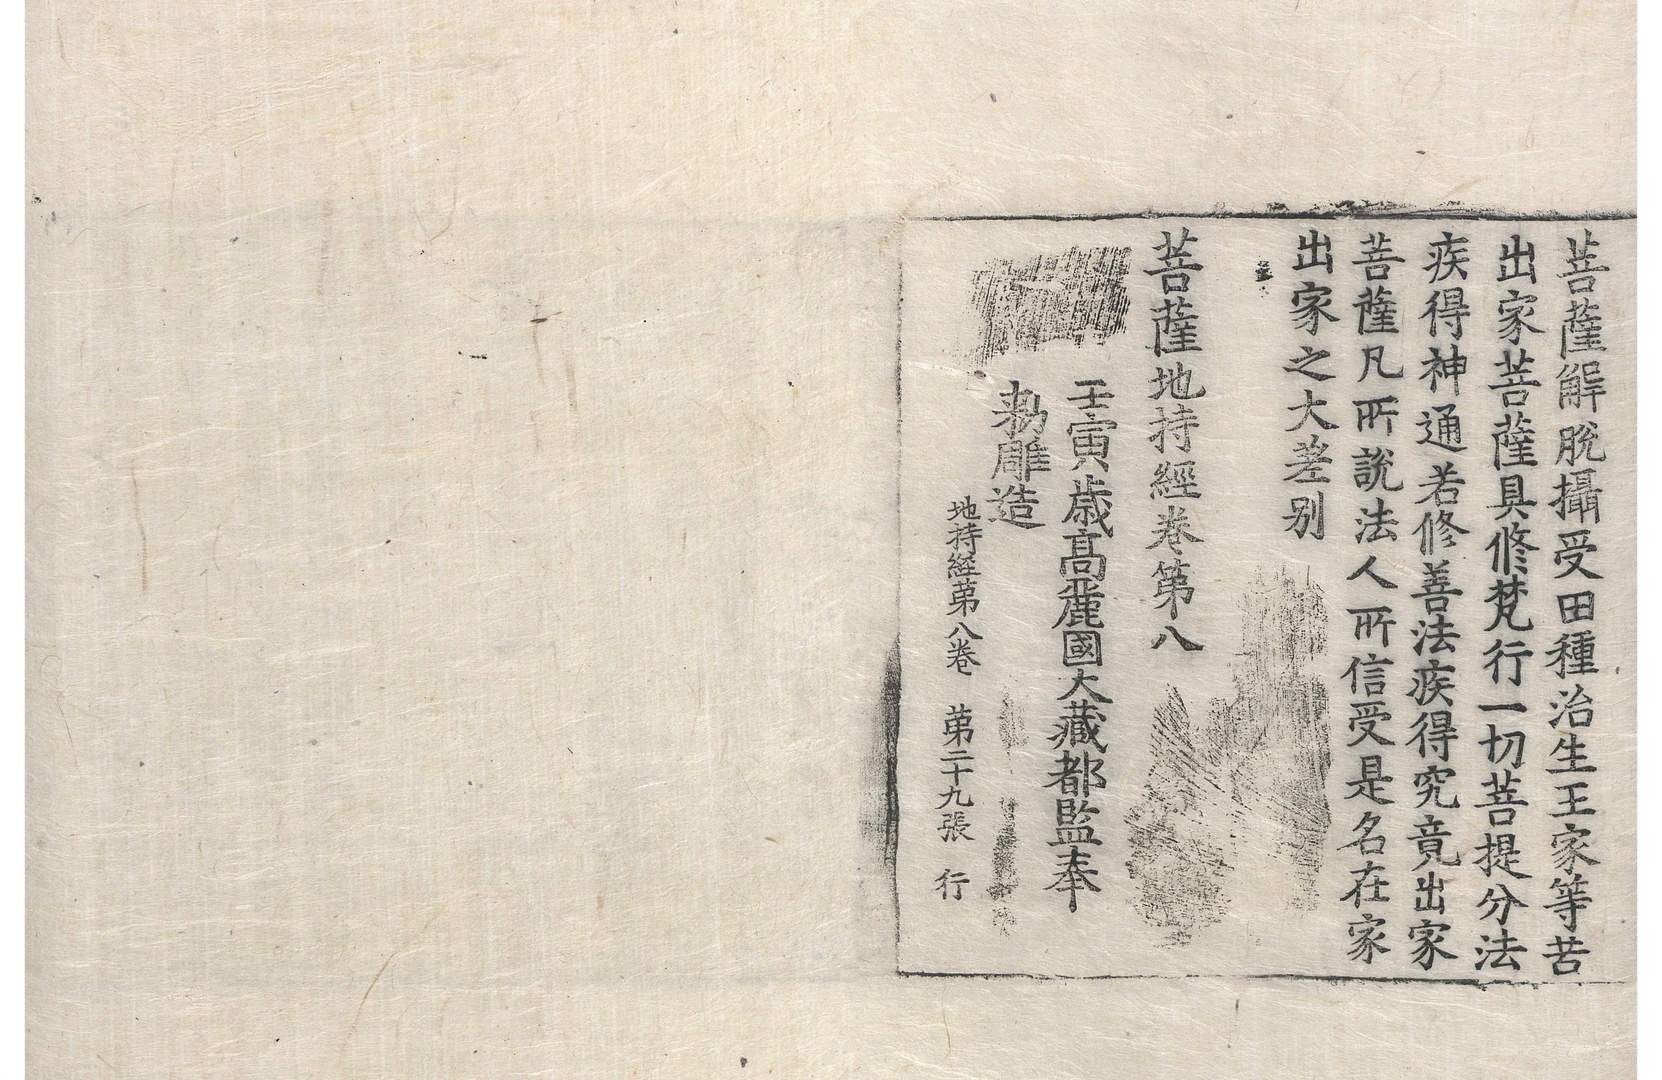 菩薩解脫攝受田種治生王家等苦
出家菩薩具修梵行一切菩提分法
疾得神通若修善法疾得究竟出家
菩薩凡所說法人所信受是名在家
出家之大差别
菩薩地持經卷第八
壬寅歲高麗國大藏都監奉
勑雕造
地持經第八卷　第二十九張　行